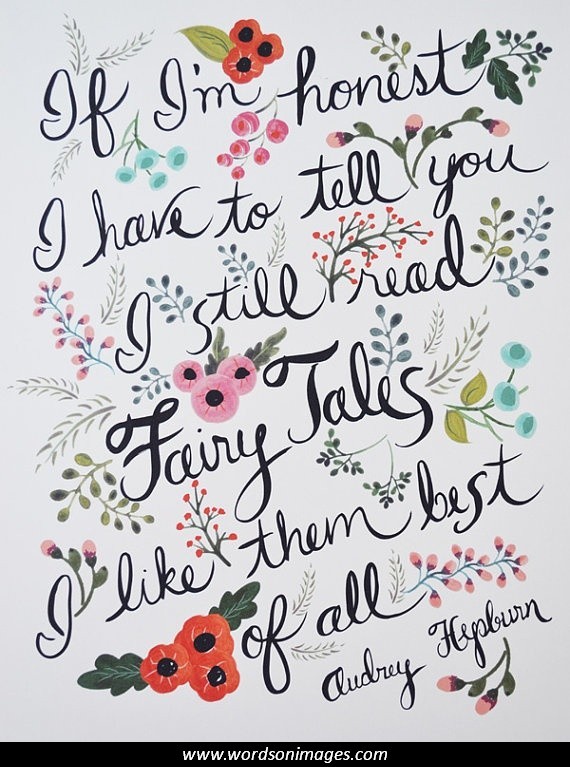 If I'm honest
I have to tell you
I still read
Fairy Tales
I like them best
of all
Audrey Hepburn
www.wordsonimages.com